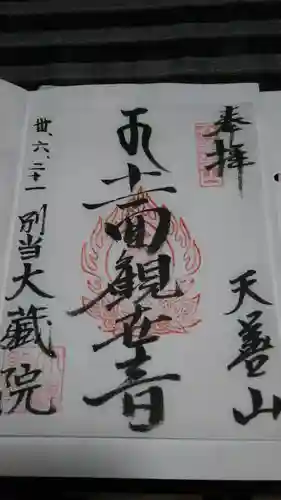 奉拝
天養山
十一面観世音
卅、六、二十一
別当大蔵院